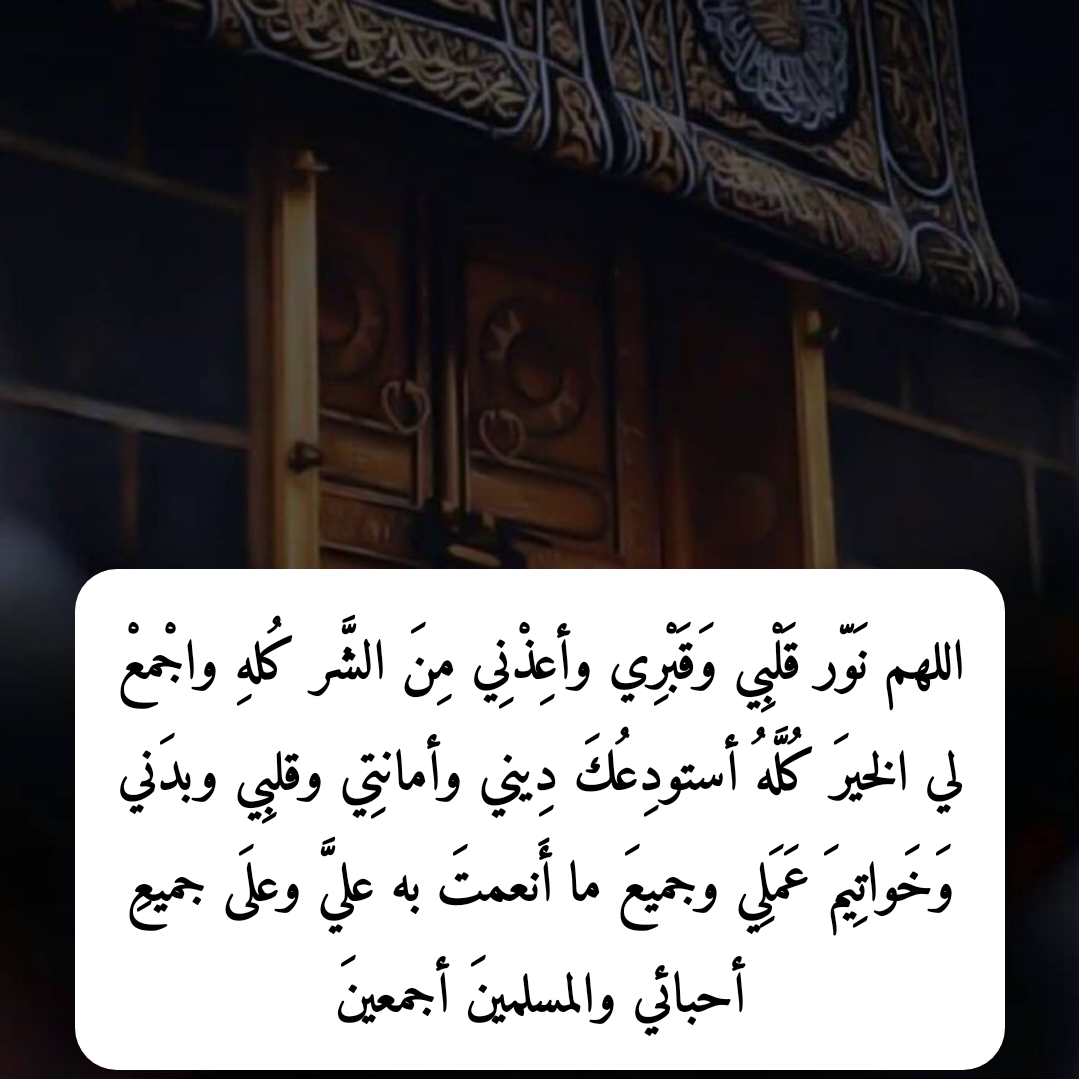 اللهم نَوّر قَلْبِي وَقَبْرِي وأعِذْنِي مِنَ الشَّر كُلهِ واجْمعْ
لي الخيرَ كُلَّهُ أستودِعُكَ دِيني وأمانتِي وقلبِي وبدَني
وَخَواتِيمَ عَمَلِي وجميعَ ما أَنعمتَ به عليَّ وعلَى جميعِ
أحبائي والمسلمينَ أجمعينَ